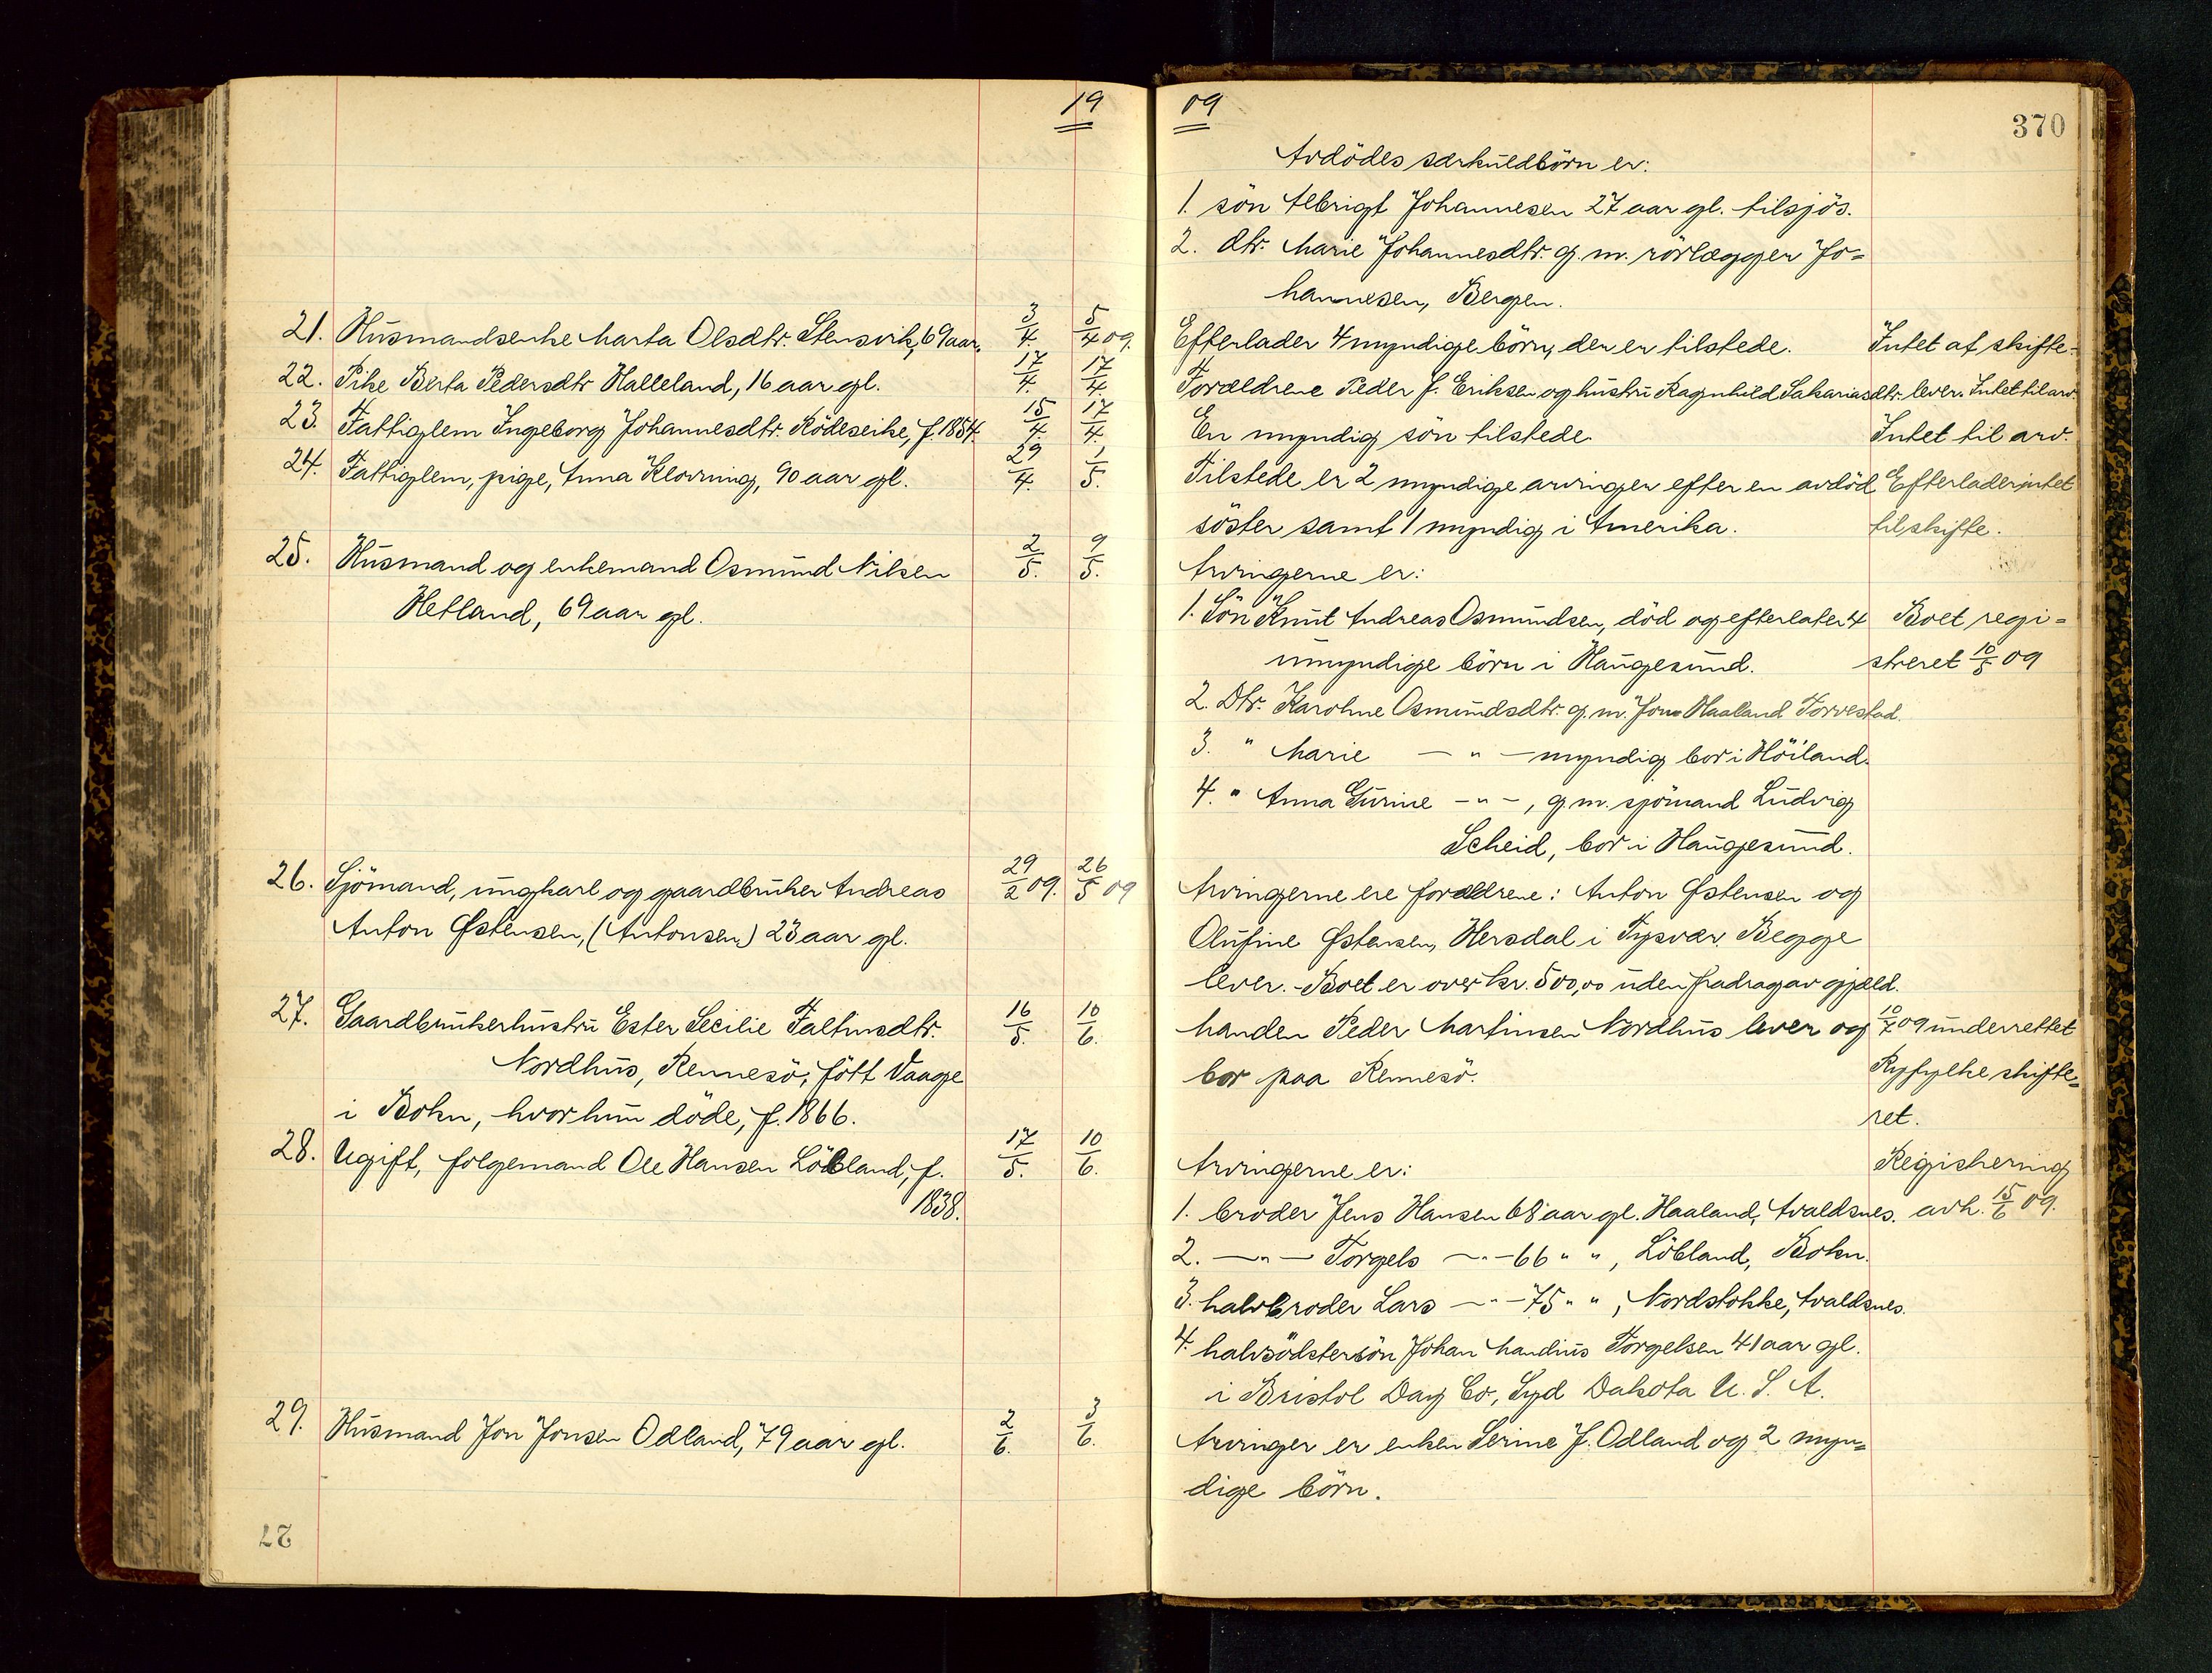 19
21. Husmandsenke Marta Olsdtr. Stensvik, 69 aar. 3/4. 5/4 09.
22. Pike Berta Pedersdtr Halleland, 16 aar gl. 17/4. 17/4.
23. Fattiglem Ingeborg Johannesdtr. Rödseike, f. 1854. 15/4. 17/4.
24. Fattiglem, pige, Anna Klovning, 90 aar gl. 29/4. 1/5.
25. Husmand og enkemand Osmund Nilsen 2/5. 9/5.
Hetland, 69 aar gl.
26. Sjömand, ungkarl og gaardbruker Andreas 29/2 09. 26/5 09
Anton Østensen, (Antonsen) 23 aar gl.
27. Gaardbrukerhustru Ester Secilie Faltinsdtr. 16/5. 10/6.
Nordhus, Rennesö, fött Vaage
i Bokn, hvor hun döde, f. 1866.
28. Ugift, folgemand Ole Hansen Löbland, f. 17/5. 10/6.
1838.
29. Husmand Jon Jonsen Odland, 79 aar gl. 2/6. 3/6.
27
09
370
Avdödes særkuldbörn er:
1. sön Albrigt Johannesen 27 aar gl. tilsjös.
2. dtr. Marie Johannesdtr. g. m. rörlægger Jo=
hannesen, Bergen.
Efterlader 4 myndige börn, der er tilstede. Intet at skifte.
Forældrene Peder J. Eriksen og hustru Ragnhild Sakariasdtr. lever. Intet til arv.
En myndig sön tilstede. Intet til arv.
Tilstede er 2 myndige arvinger efter en avdöd Efterlader intet
söster samt 1 myndig i Amerika. til skifte.
Arvingerne er:
1. Sön Knut Andreas Osmundsen, död og efterlater 4 Boet regi=
umyndige börn i Haugesund. streret 10/5 09
2. Dtr. Karoline Osmundsdtr. g. m. Jon Haaland Torvestad.
3. " Marie — " — myndig bor i Höiland.
4. " Anna Gurine - " -, g. m. sjömand Ludvig
Scheid, bor i Haugesund.
Arvingerne ere forældrene: Anton Østensen og
Olufine Østensen, Hersdal i Tysvær. Begge
lever. - Boet er over kr. 500,00 uden fradrag av gjæld.
Manden Peder Martinsen Nordhus lever og 10/7 09 underrettet
bor paa Rennesö. Ryfylke skifte=
ret.
Arvingerne er: Registrering
1. broder Jens Hansen 68 aar gl. Haaland, Avaldsnes. avh. 15/6 09.
2. — " — Torgels — " — 66 " ", Löbland, Bokn.
3. halvbroder Lars — " — 75 " ", Nordstokke, Avaldsnes.
4. halvsöstersön Johan Mandius Torgelsen 41 aar gl.
i Bristol Day Co, Syd Dakota U. S. A.
Arvinger er enken Serine J. Odland og 2 myn=
dige börn.